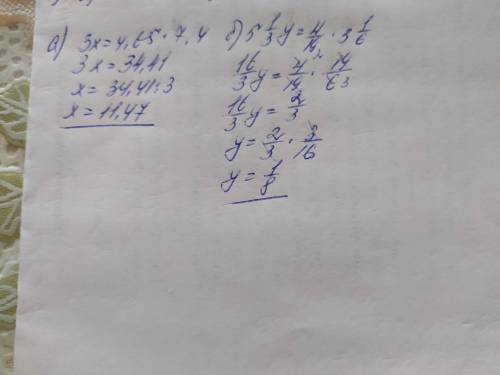 а) 3x=4,65·7,4
3x=34,41
x=34,41:3
x=11,47
б) 5 1/3 y = 4/19 · 3 1/6
16/3 y = 4/19 · 19/6 3
16/3 y = 2/3
y = 2/3 · 3/16
y = 1/8